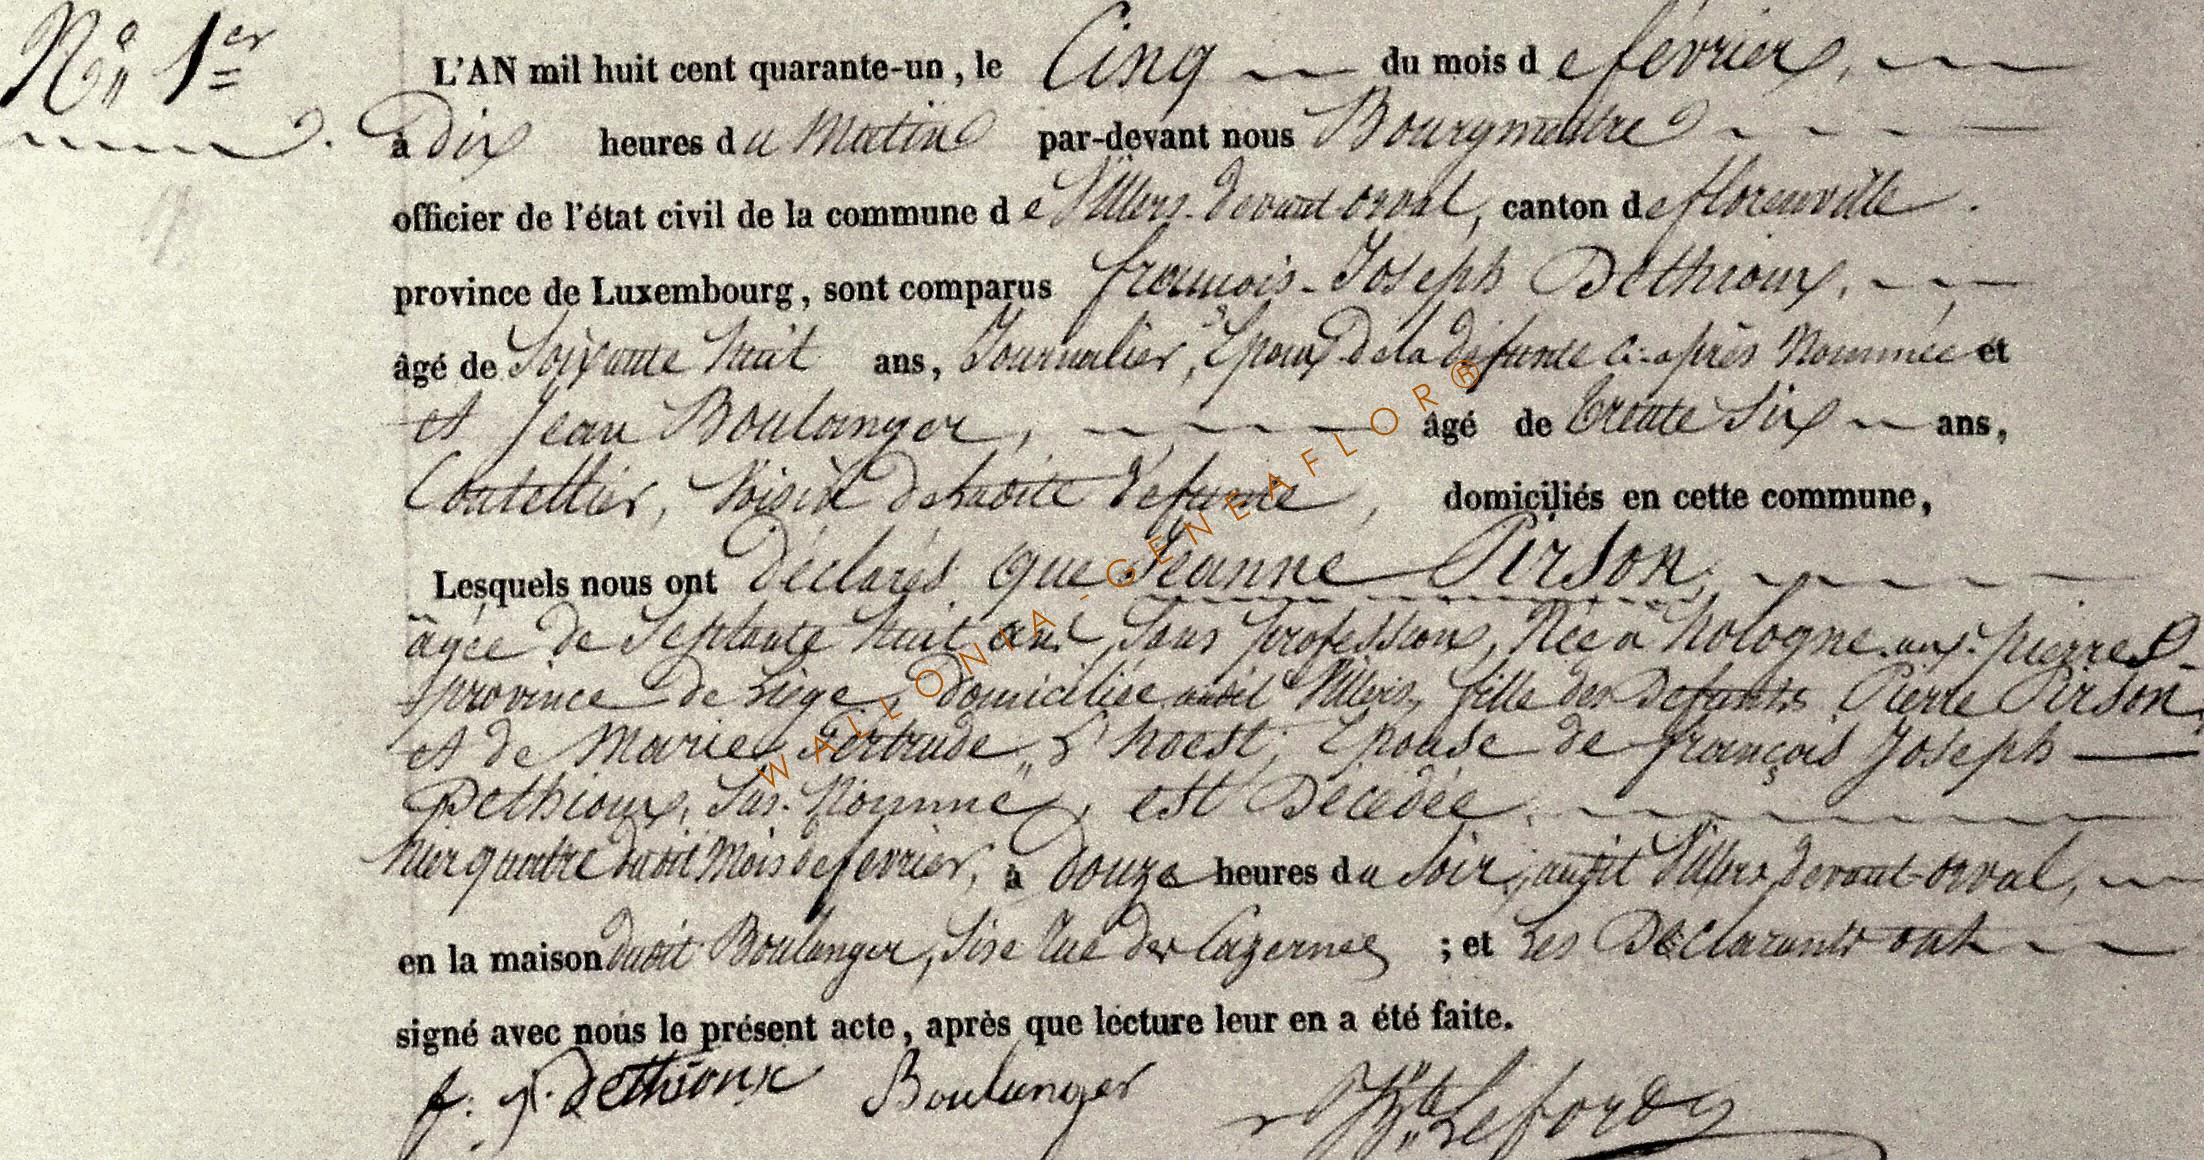 N° 1er
L'AN mil huit cent quarante-un, le Cinq du mois de février,
à dix heures du Matin par-devant nous Bourgmestre
officier de l'état civil de la commune de Villers-devant-orval, canton de florenville.
province de Luxembourg, sont comparus françois-Joseph Dethioux,
âgé de Soixante huit ans, Journalier, Epoux de la défunte ci-après Nommée et
et Jean Boulanger, âgé de trente Six ans,
Coutellier, Voisin de ladite défunte, domiciliés en cette commune,
Lesquels nous ont déclarés que Jeanne Pirson,
âgée de Septante huit ans, Sans profession, Née à hologne-aux-pierres
province de Liège, domiciliée audit Villers, fille des Défunts Pierre Pirson,
et de Marie Gertrude L'hoest, Epouse de françois Joseph
Dethioux, Sus-Nommé, est Décédée
hier quatre dudit Mois de fevrier, à douze heures du Soir, audit Villers devant-orval,
en la maison dudit Boulanger, Sise Rue des Cazernes ; et Les Déclarants ont
signé avec nous le présent acte, après que lecture leur en a été faite.
f. j. dethioux Boulanger Lefordy
WALLONIA-GENEAFLOR®